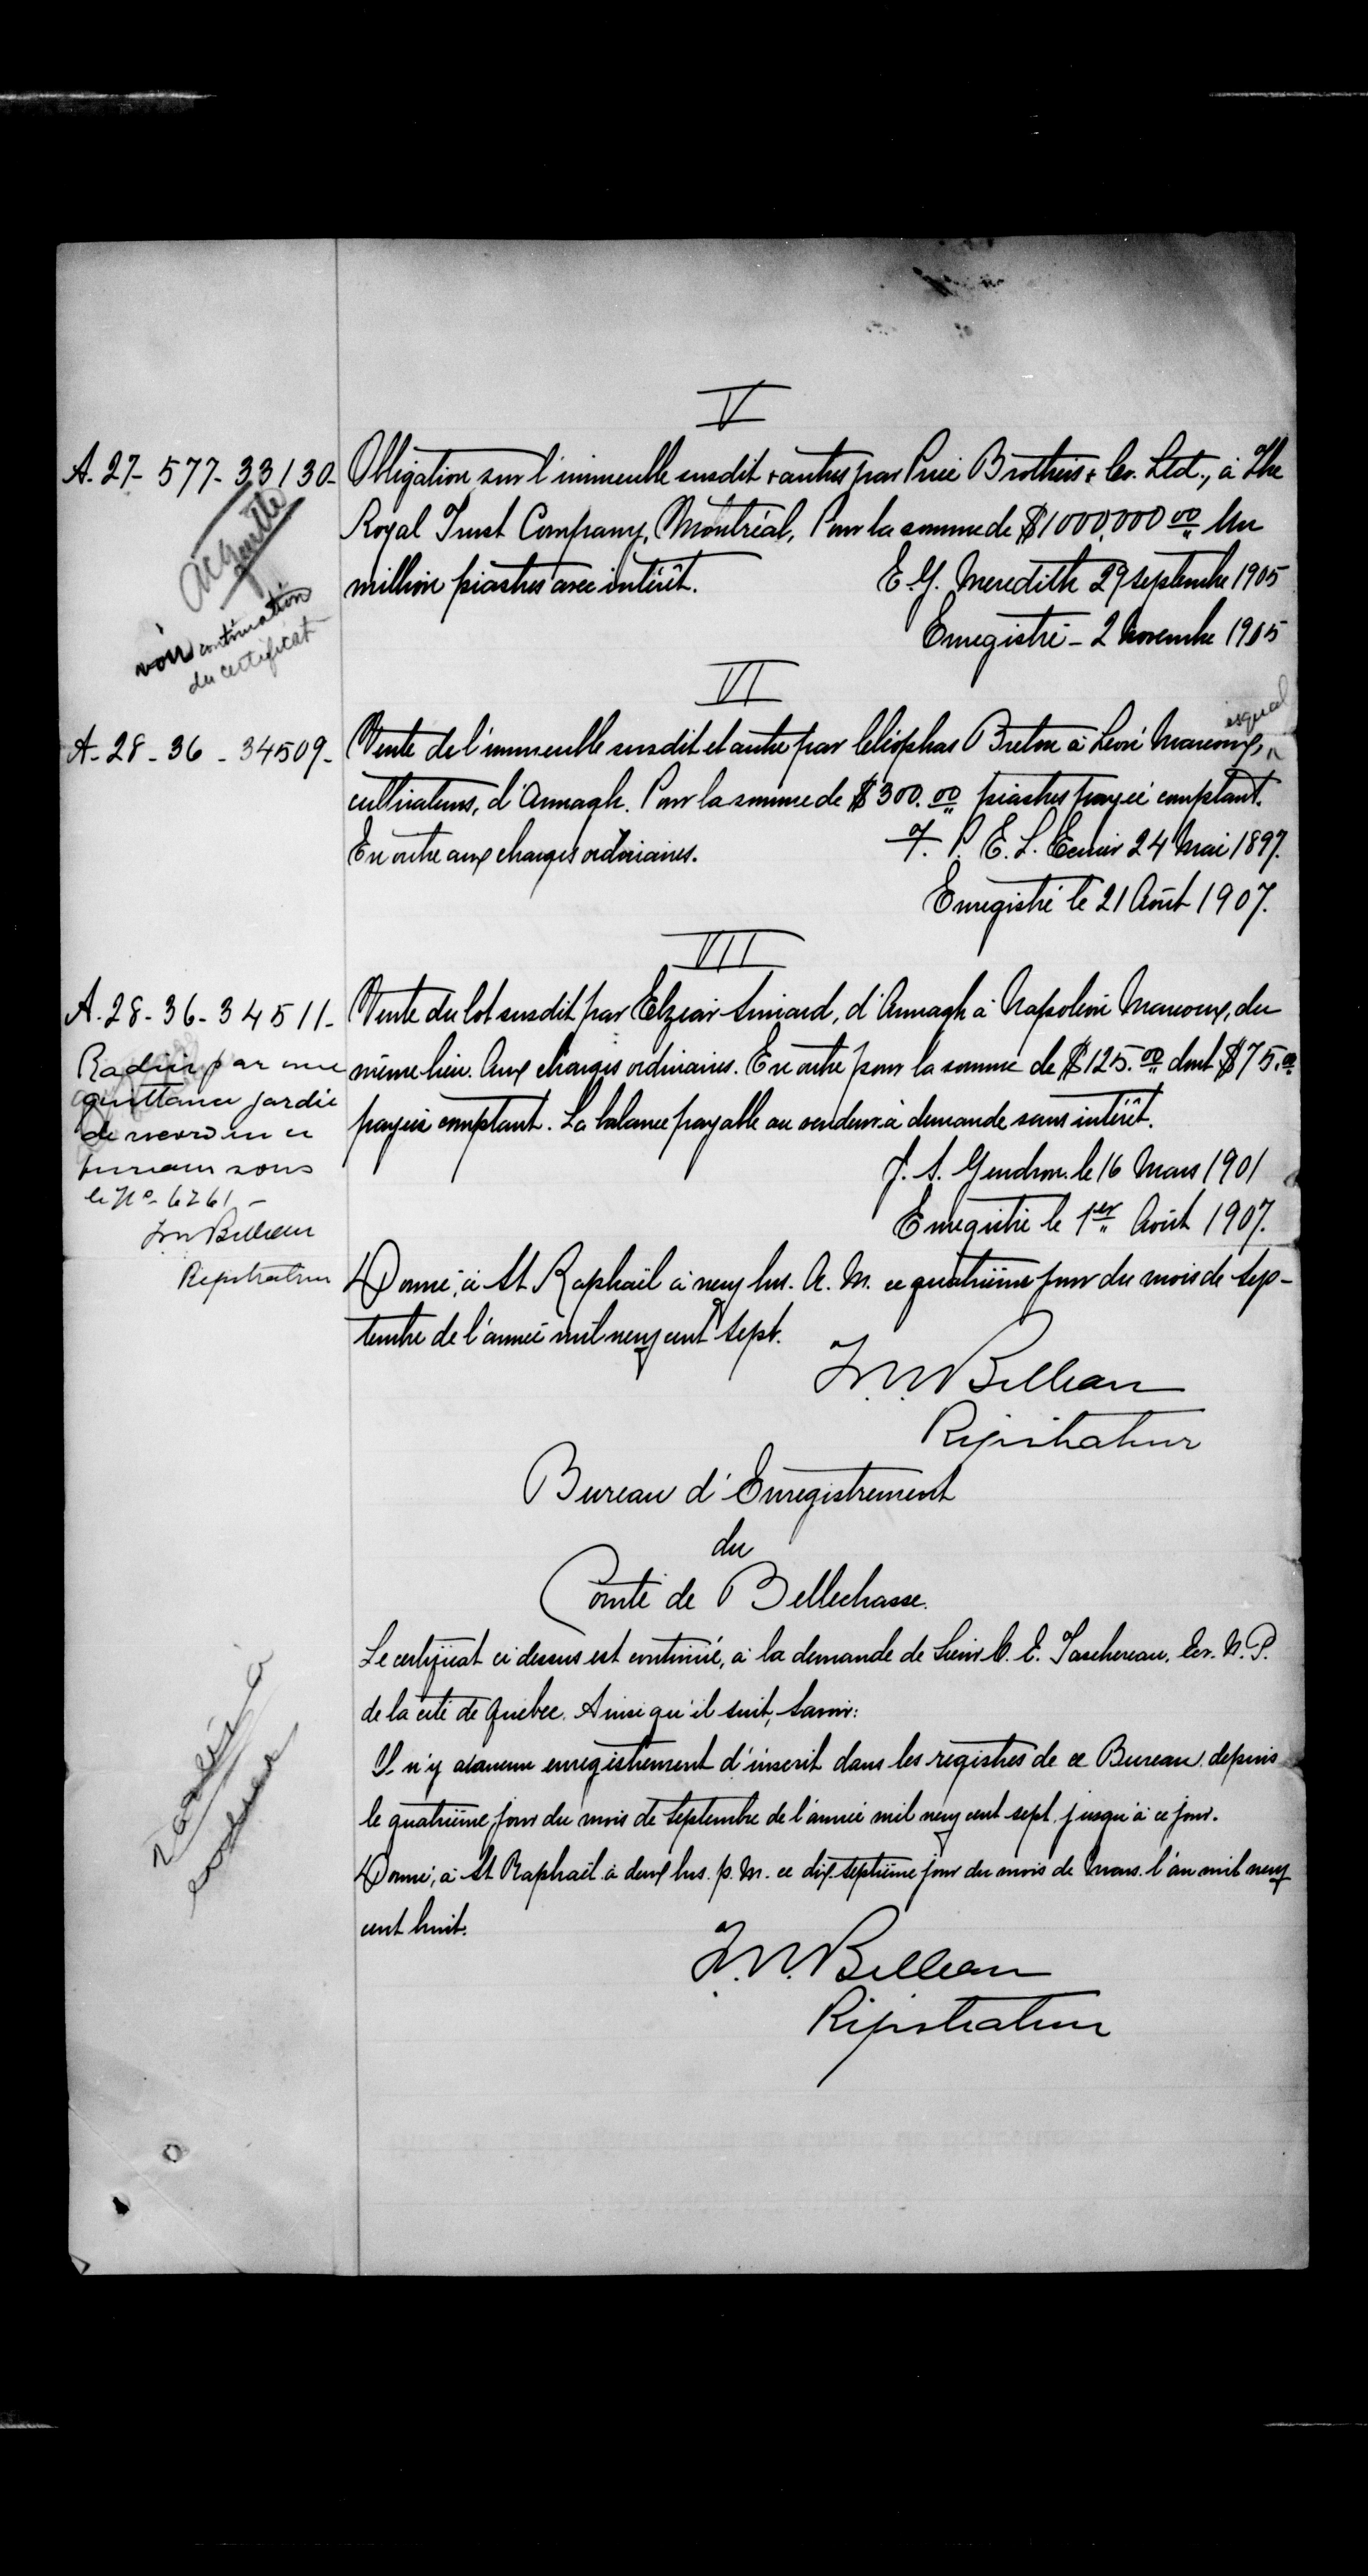 V
A. 27- 577- 33130- Obligation sur l'immeuble susdit & autres par Price Brothers & Co. Ltd., à The
Royal Trust Company, Montréal, Pour la somme de $1000,000 00 Un
million piastres avec intérêt. E. G. Meredith 29 septembre 1905
Enregistré - 2 Novembre 1905
Acquitté
voir continuation
du certificat
VI
esqual
A- 28 - 36 - 34509- Vente de l'immeuble susdit et autre par Cléophas Breton à Léon Marcoux,
cultivateurs, d'Armagh. Pour la somme de $300.00 piastres payée comptant.
En outre aux charges ordinaires. F. P. E. L. 24 Mai 1897.
Enregistré le 21 Août 1907.
VII
A. 28- 36- 34511- Vente du lot susdit par Elzéar Simard, d'Armagh à Napoléon Marcoux, du
même lieu. Aux charges ordinaires. En outre pour la somme de $125.00 dont $75.00
payée comptant. La balance payable au vendeur à demande sans intérêt.
J. A. Gendron le 16 Mars 1901
Enregistré le 1er Août 1907.
Radiée par une
quittance gardée
de record en ce
bureau sous
le No- 6261-
J. N. Belleau
Régistrateur
Donné, à St Raphaël à neuf hrs. A. M. ce quatrième jour du mois de sep-
tembre de l'année mil neuf cent sept.
J. N. Belleau
Régistrateur
Bureau d'Enregistrement
du
Comté de Bellechasse.
Le certificat ci dessus est continué, à la demande de Sieur C. E. Taschereau, Ecr. N. P.
de la cité de Québec. Ainsi qu'il suit, Savoir:
Il n'y a aucun enregistrement d'inscrit dans les registres de ce Bureau depuis
le quatrième jour du mois de Septembre de l'année mil neuf cent sept jusqu'à ce jour.
Donné, à St Raphaël à deux hrs. p. M. ce dix-septième jour du mois de Mars l'an mil neuf
cent huit.
J. N. Belleau
Régistrateur